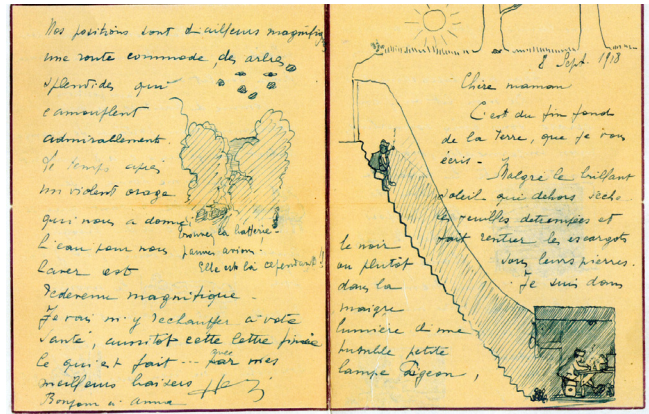 Nos positions sont d'ailleurs magnifiques
une route commode, des arbres
splendides qui
camouflent
admirablement.
Le temps après
un violent orage
qui nous a donné
l'eau pour nous
laver est
redevenu magnifique.
Je vais m'y rechauffer à votre
santé, aussitot cette lettre finie
ce qui est fait... avec par mes
meilleurs baisers
Bonjour à Anna
trouvez la batterie!
pauvres avions!
Elle est là cependant!!
8 Sept. 1918
Chère maman
C'est du fin fond
de la Terre, que je vous
écris -
Malgré le brillant
soleil qui dehors sèche
les feuilles detrempées et
fait rentrer les escargots
sous leurs pierres.
Je suis dans
le noir
ou plutôt
dans la
maigre
lumière d'une
humble petite
lampe Pigeon,